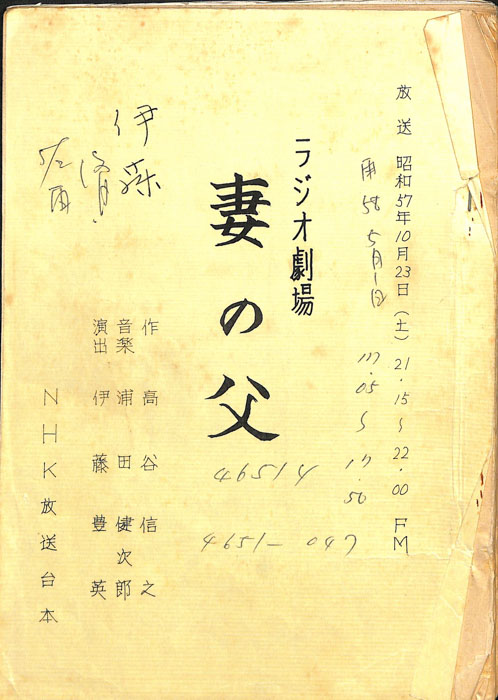 放送 昭和57年10月23日（土） 21.15〜22.00 FM
再 58 5月1日 17.05〜17.50
ラジオ劇場
妻の父
作 高谷信之
音楽 浦田健次郎
演出 伊藤豊英
NHK放送台本
伊藤